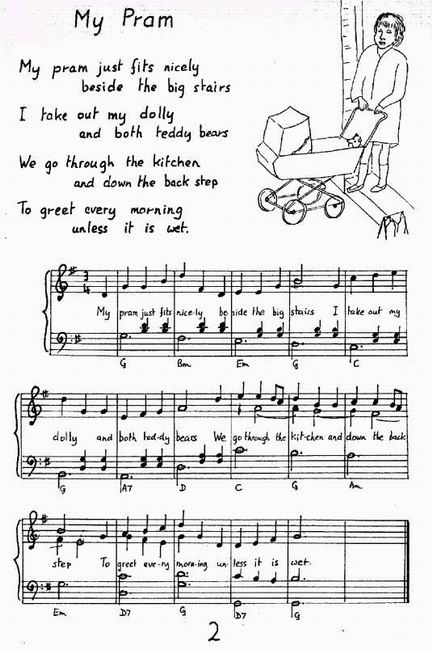 My Pram
My pram just fits nicely
beside the big stairs
I take out my dolly
and both teddy bears
We go through the kitchen
and down the back step
To greet every morning
unless it is wet.
3
4
My pram just fits nice-ly be side the big stairs I take out my
G Bm Em G C
dolly and both ted-dy bears We go through the kit-chen and down the back
G A7 D C G Am
step To greet eve-ry morn-ing un-less it is wet.
Em D7 G D7 G
2